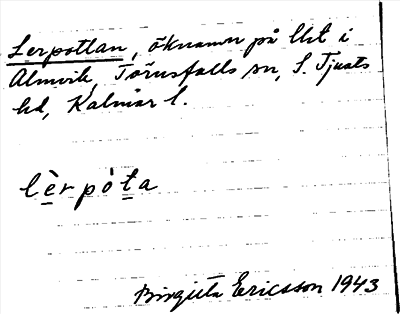 Lerpottan, öknamn på lht i
Almvik, Törnsfalls sn, S. Tjusts
hd, Kalmar l.
lèrpòta
Birgitta Ericsson 1943